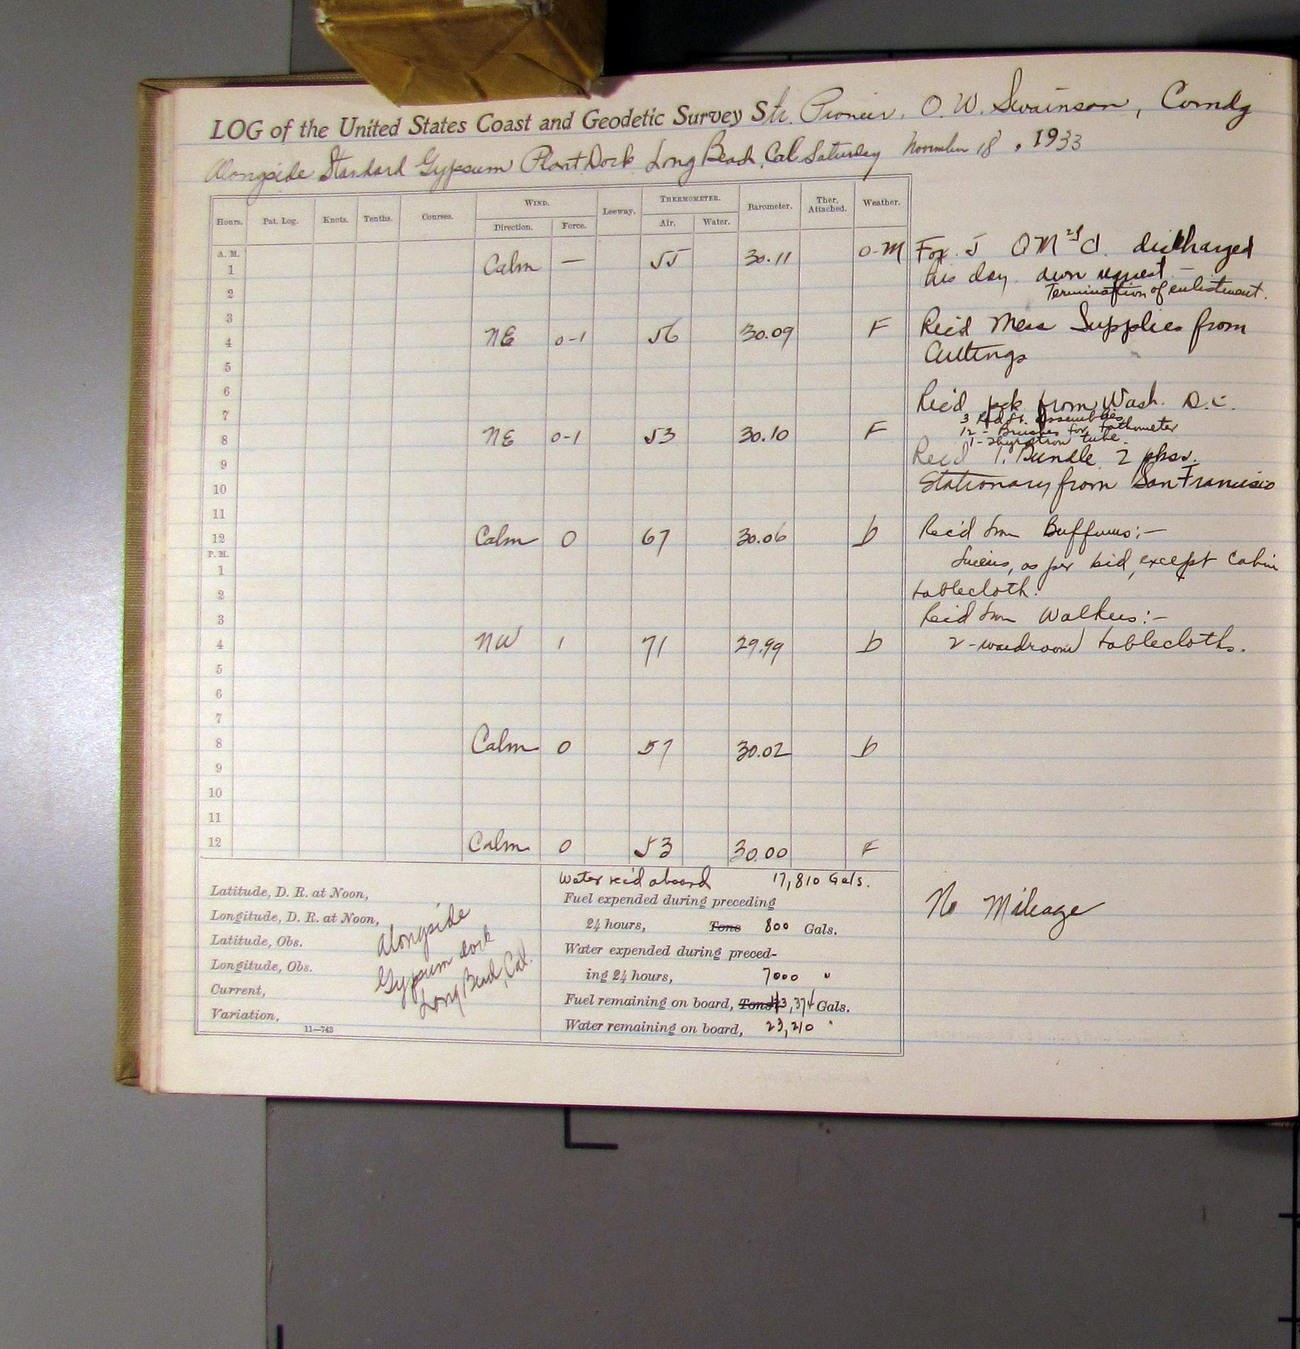 LOG of the United States Coast and Geodetic Survey Str. Pioneer, O. W. Swainson, Comdg
Alongside Standard Gypsum Plant Dock, Long Beach, Cal. Saturday November 18, 1933
Hours. Pat. Log. Knots. Tenths. Courses. WIND. Leeway. THERMOMETER. Barometer. Ther. Attached. Weather.
Direction. Force. Air. Water.
A. M.
1 Calm — 55 30.11 O-M
2
3
4 NE 0-1 56 30.09 F
5
6
7
8 NE 0-1 53 30.10 F
9
10
11
12 Calm 0 67 30.06 b
P. M.
1
2
3
4 NW 1 71 29.99 b
5
6
7
8 Calm 0 57 30.02 b
9
10
11
12 Calm 0 53 30.00 F
Fox. J OM 2d C. discharged
this day own request —
Termination of enlistment.
Rec'd Mess Supplies from
Cuttings
Rec'd pck from Wash. D.C.
3 Red Lt. Assemblies
12 - Brushes for fathometer
1 - Thyratron tube.
Recd 1. Bundle 2 pkgs.
Stationary from San Francisco
Rec'd from Buffums:—
Linens, as per bid, except Cabin
tablecloth.
Rec'd from Walkers:—
2 - wardroom tablecloths.
Latitude, D. R. at Noon,
Longitude, D. R. at Noon,
Latitude, Obs.
Longitude, Obs.
Current,
Variation,
11—743
Alongside
Gypsum dock
Long Beach, Cal.
Water rec'd aboard 17,810 Gals.
Fuel expended during preceding
24 hours, Tons 800 Gals.
Water expended during preced-
ing 24 hours, 7000 "
Fuel remaining on board, Tons 43,374 Gals.
Water remaining on board, 23,210 "
No Mileage